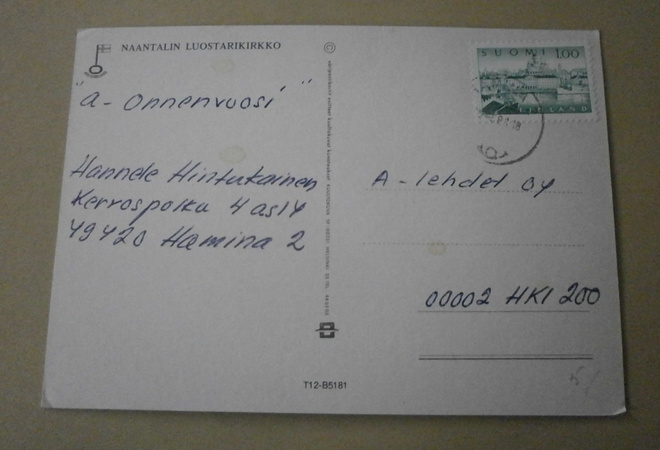 NAANTALIN LUOSTARIKIRKKO
"A- ONNENVUOSI"
Hannele Hintukainen
Kerrospolku 4 as 14
49420 Hamina 2
SUOMI 1.00
FINLAND
A-lehdet OY
00002 HKI 200
T12-B5181